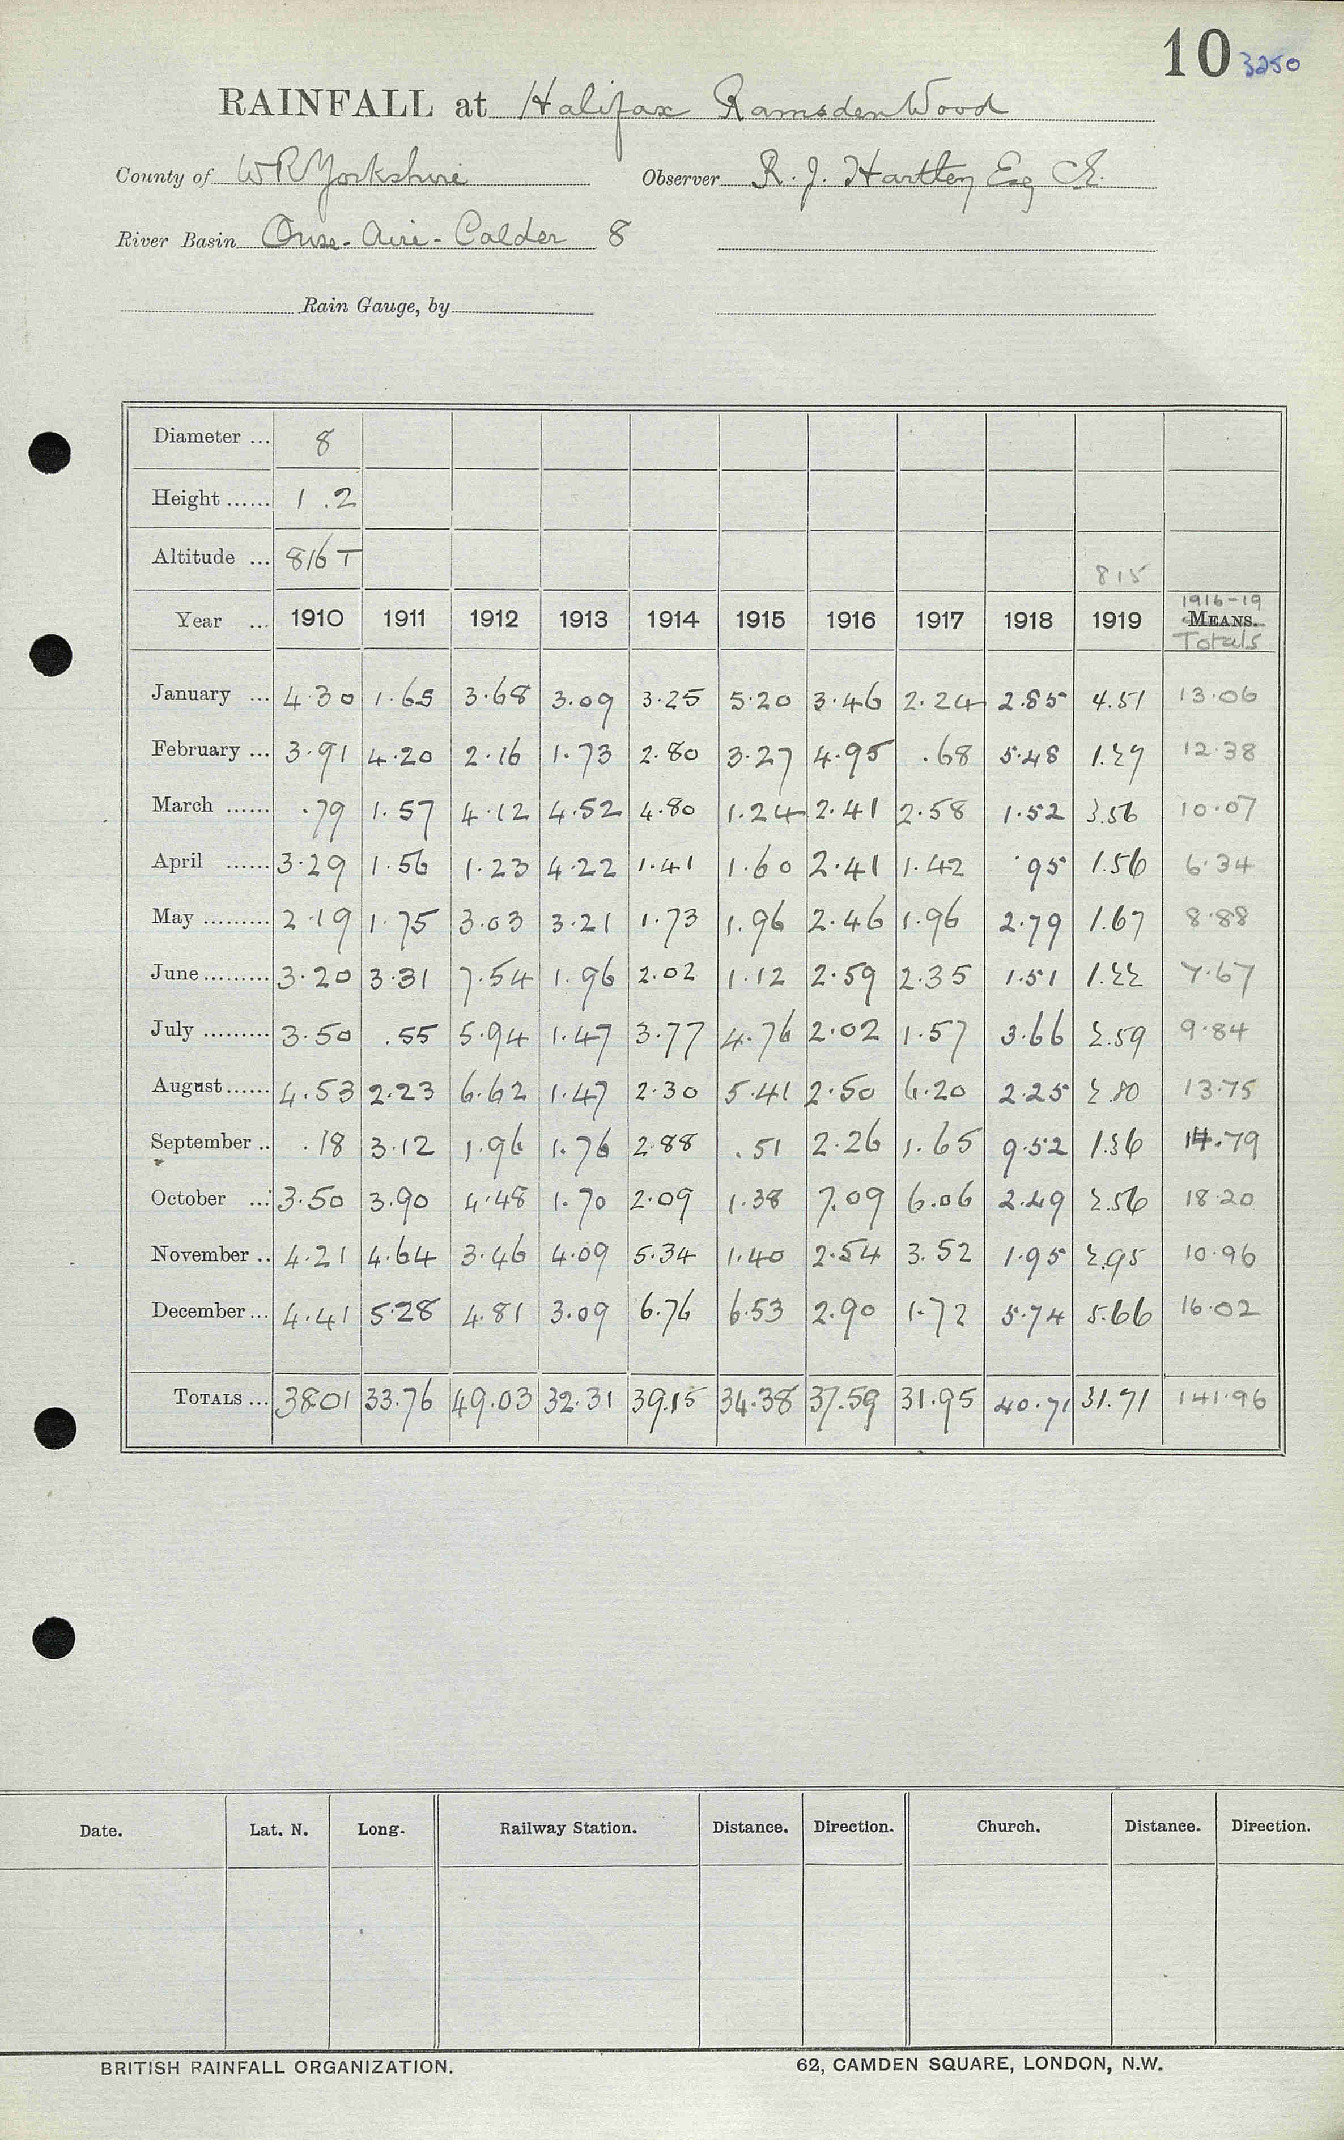 10 3250
RAINFALL at Halifax Ramsden Wood
County of W R Yorkshire Observer R. J. Hartley Esq CE.
River Basin Ouse - Aire - Calder 8
Rain Gauge, by
Diameter ... 8
Height ...... 1 .2
Altitude ... 816 T 815
Year ... 1910 1911 1912 1913 1914 1915 1916 1917 1918 1919 1916-19 MEANS. Totals
January ... 4.30 1.65 3.68 3.09 3.25 5.20 3.46 2.24 2.85 4.51 13.06
February ... 3.91 4.20 2.16 1.73 2.80 3.27 4.95 .68 5.48 1.27 12.38
March ...... .79 1.57 4.12 4.52 4.80 1.24 2.41 2.58 1.52 3.56 10.07
April ...... 3.29 1.56 1.23 4.22 1.41 1.60 2.41 1.42 .95 1.56 6.34
May ......... 2.19 1.75 3.03 3.21 1.73 1.96 2.46 1.96 2.79 1.67 8.88
June ......... 3.20 3.31 7.54 1.96 2.02 1.12 2.59 2.35 1.51 1.22 7.67
July ......... 3.50 .55 5.94 1.47 3.77 4.76 2.02 1.57 3.66 2.59 9.84
August ...... 4.53 2.23 6.62 1.47 2.30 5.41 2.50 6.20 2.25 2.80 13.75
September .. .18 3.12 1.96 1.76 2.88 .51 2.26 1.65 9.52 1.36 14.79
October ... 3.50 3.90 4.48 1.70 2.09 1.38 7.09 6.06 2.49 2.56 18.20
November .. 4.21 4.64 3.46 4.09 5.34 1.40 2.54 3.52 1.95 2.95 10.96
December ... 4.41 5.28 4.81 3.09 6.76 6.53 2.90 1.72 5.74 5.66 16.02
TOTALS ... 38.01 33.76 49.03 32.31 39.15 34.38 37.59 31.95 40.71 31.71 141.96
Date. Lat. N. Long. Railway Station. Distance. Direction. Church. Distance. Direction.
BRITISH RAINFALL ORGANIZATION. 62, CAMDEN SQUARE, LONDON, N.W.